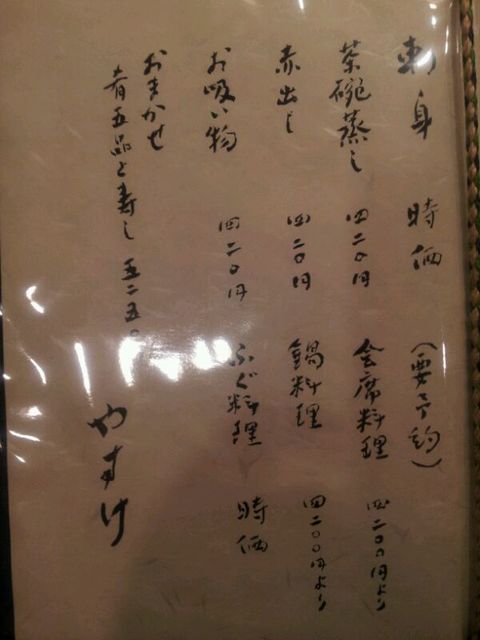 刺身 時価
茶碗蒸し 四二〇円
赤出し 四二〇円
お吸い物 四二〇円
おまかせ
肴五品と寿し 五二五〇
(要予約)
会席料理 四二〇〇円より
鍋料理 四二〇〇円より
ふぐ料理 時価
やすけ